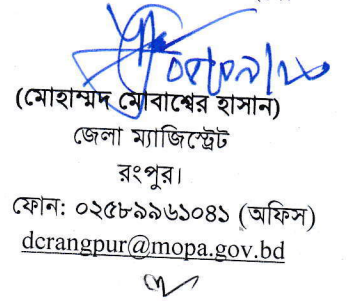 (মোহাম্মদ মোবাশ্বের হাসান)
জেলা ম্যাজিস্ট্রেট
রংপুর।
ফোন: ০২৫৮৯৯৬১০৪১ (অফিস)
dcrangpur@mopa.gov.bd